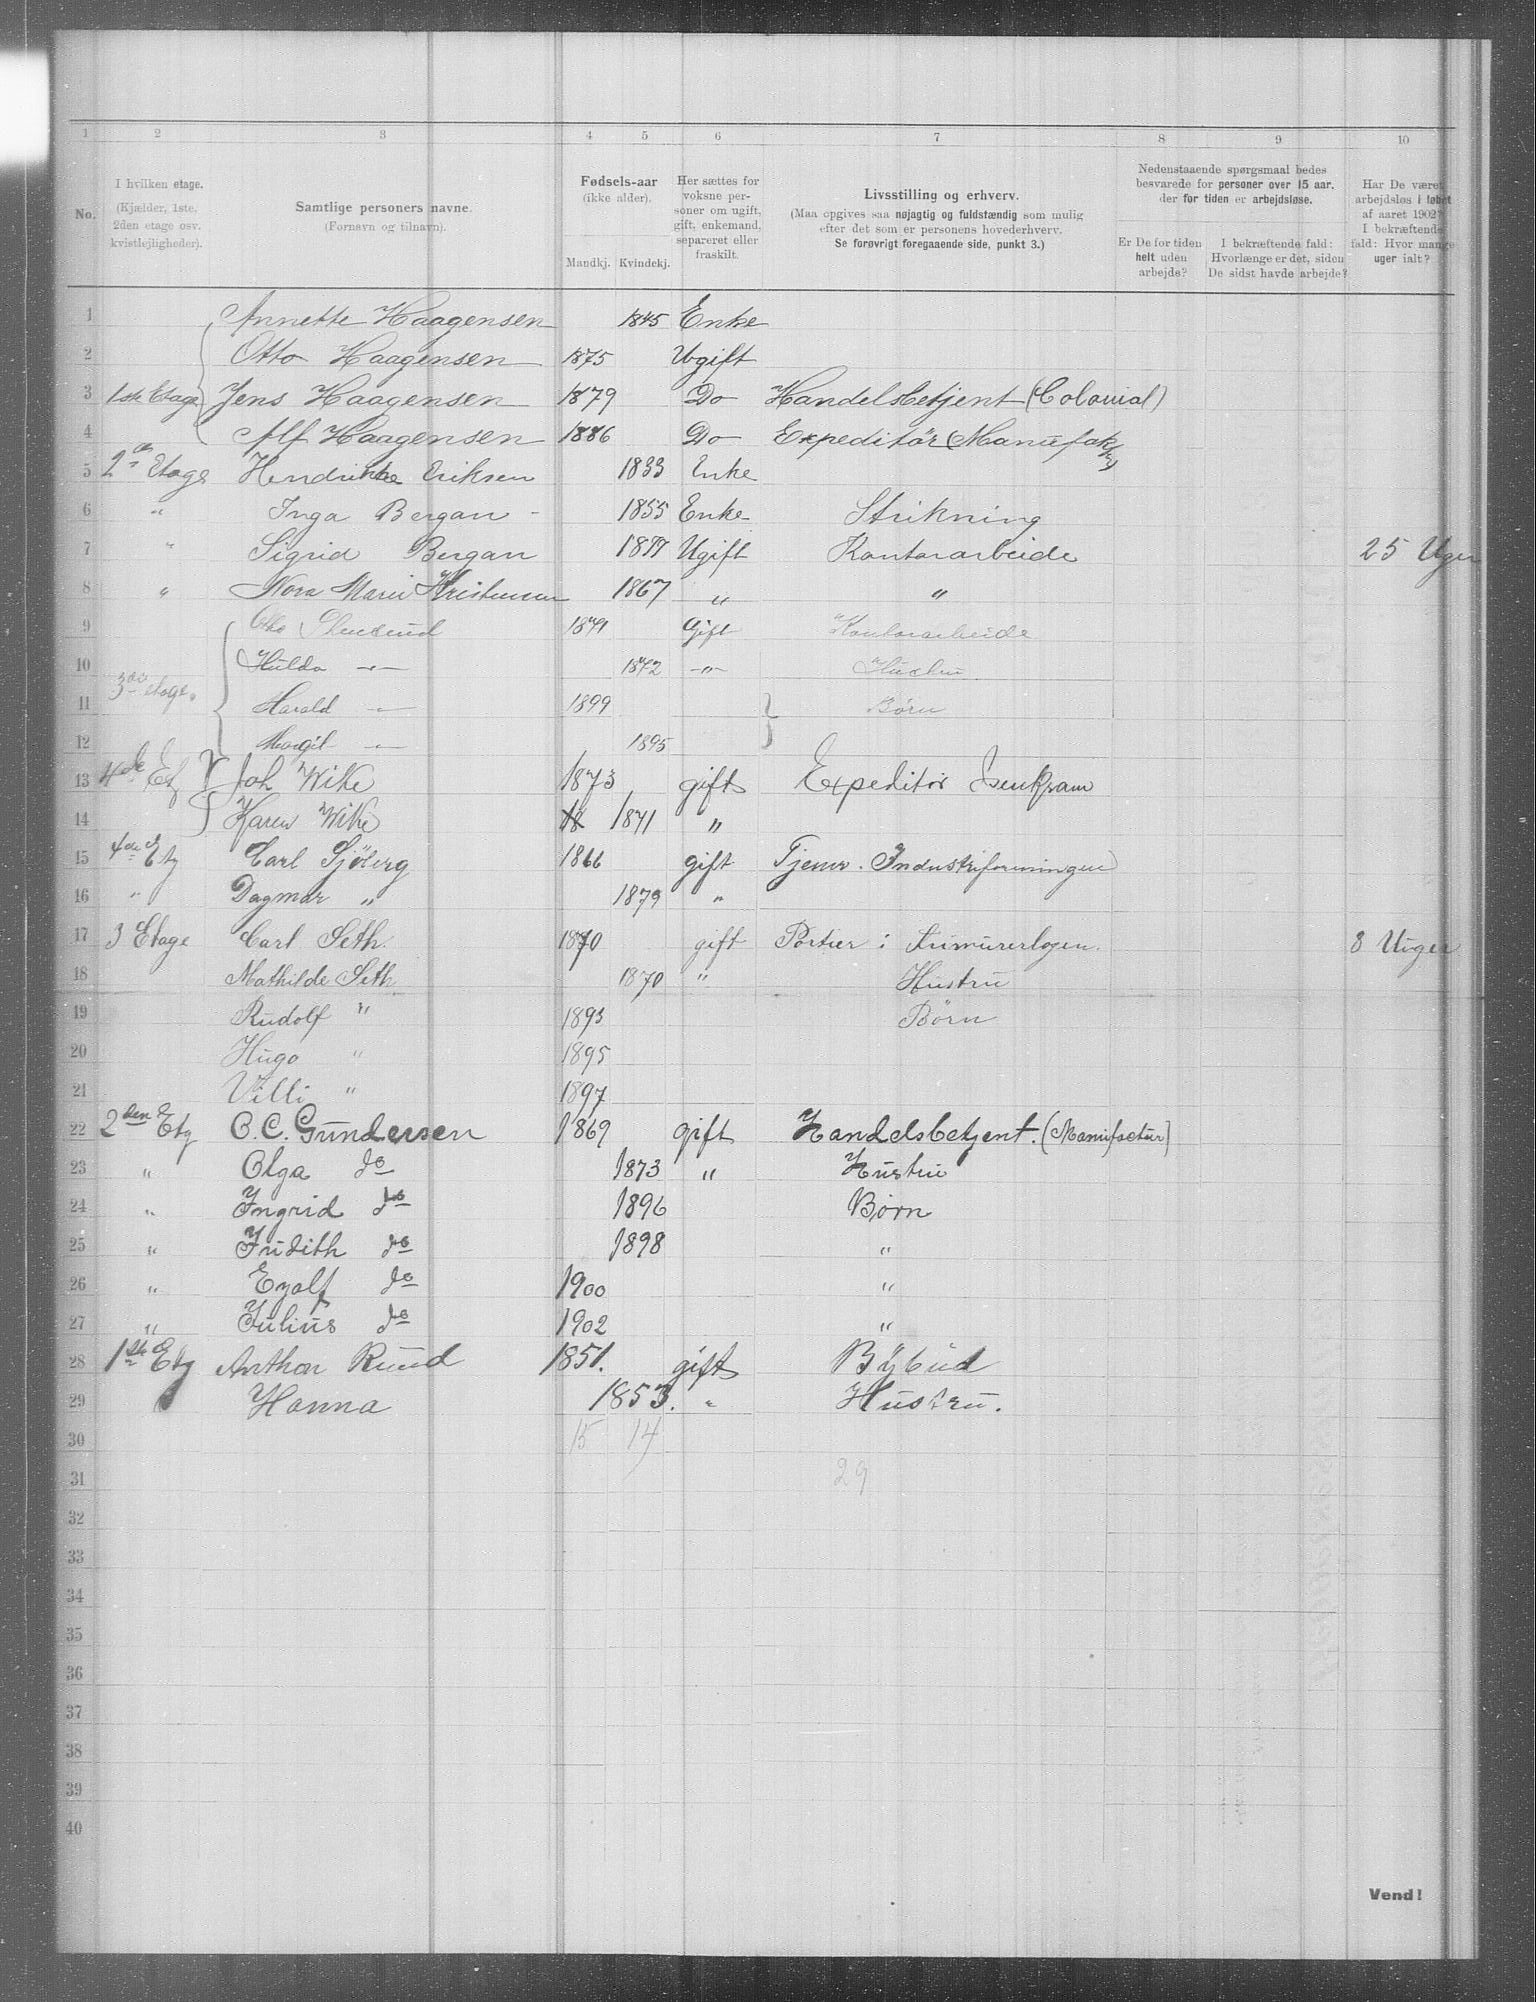 1 2 3 4 5 6 7 8 9 10
No.
I hvilken etage.
(Kjælder, 1ste.
2den etage osv.
kvistlejligheder).
Samtlige personers navne.
(Fornavn og tilnavn).
Fødsels-aar
(ikke alder).
Mandkj. Kvindekj.
Her sættes for
voksne per-
soner om ugift,
gift, enkemand,
separeret eller
fraskilt.
Livsstilling og erhverv.
(Maa opgives saa nøjagtig og fuldstændig som mulig
efter det som er personens hovederhverv.
Se forøvrigt foregaaende side, punkt 3.)
Nedenstaaende spørgsmaal bedes
besvarede for personer over 15 aar,
der for tiden er arbejdsløse.
Er De for tiden
helt uden
arbejde?
I bekræftende fald:
Hvorlænge er det, siden
De sidst havde arbejde?
Har De været
arbejdsløs i løbet
af aaret 1902?
I bekræftende
fald: Hvor mange
uger ialt?
1 Annette Haagensen 1845 Enke
2 Otto Haagensen 1875 Ugift
3 1ste Etage Jens Haagensen 1879 Do Handelsbetjent (Colonial)
4 Alf Haagensen 1886 Do Expeditör (Manufak
5 2 Etage Hendrikke Eriksen 1833 Enke
6 " Inga Bergan - 1855 Enke Strikning
7 " Sigrid Bergan 1877 Ugift Kontorarbeide 25 Uger
8 " Nora Marie Kristensen 1867 " "
9 Otto 1871 Gift Kontorarbeide
10 Hulda -"- 1872 -"- Hustru
11 3die etage. Harald -"- 1899 Børn
12 Margit -"- 1895
13 4de Etg Joh Wike 1873 gift Expeditör
14 Karen Wike 18 1871 "
15 4de Etg Carl Sjöberg 1866 gift Tjener. Industriforeningen
16 " Dagmar " 1879 "
17 3 Etage Carl Seth. 1870 gift Portier i Frimurerlogen. 8 Uiger
18 Mathilde Seth 1870 " Hustru
19 Rudolf " 1893 Börn
20 Hugo " 1895
21 Villi " 1897
22 2den Etg O. C. Gundersen 1869 gift Handelsbetjent. (Manufactur)
23 " Olga do 1873 " Hustru
24 " Ingrid do 1896 Børn
25 " Judith do 1898 "
26 " Eyolf do 1900 "
27 " Julius do 1902 "
28 1ste Etg Arthor Ruud 1851. gift Bybud
29 Hanna 1853. " Hustru.
30 15 14
31 29
32
33
34
35
36
37
38
39
40
Vend!